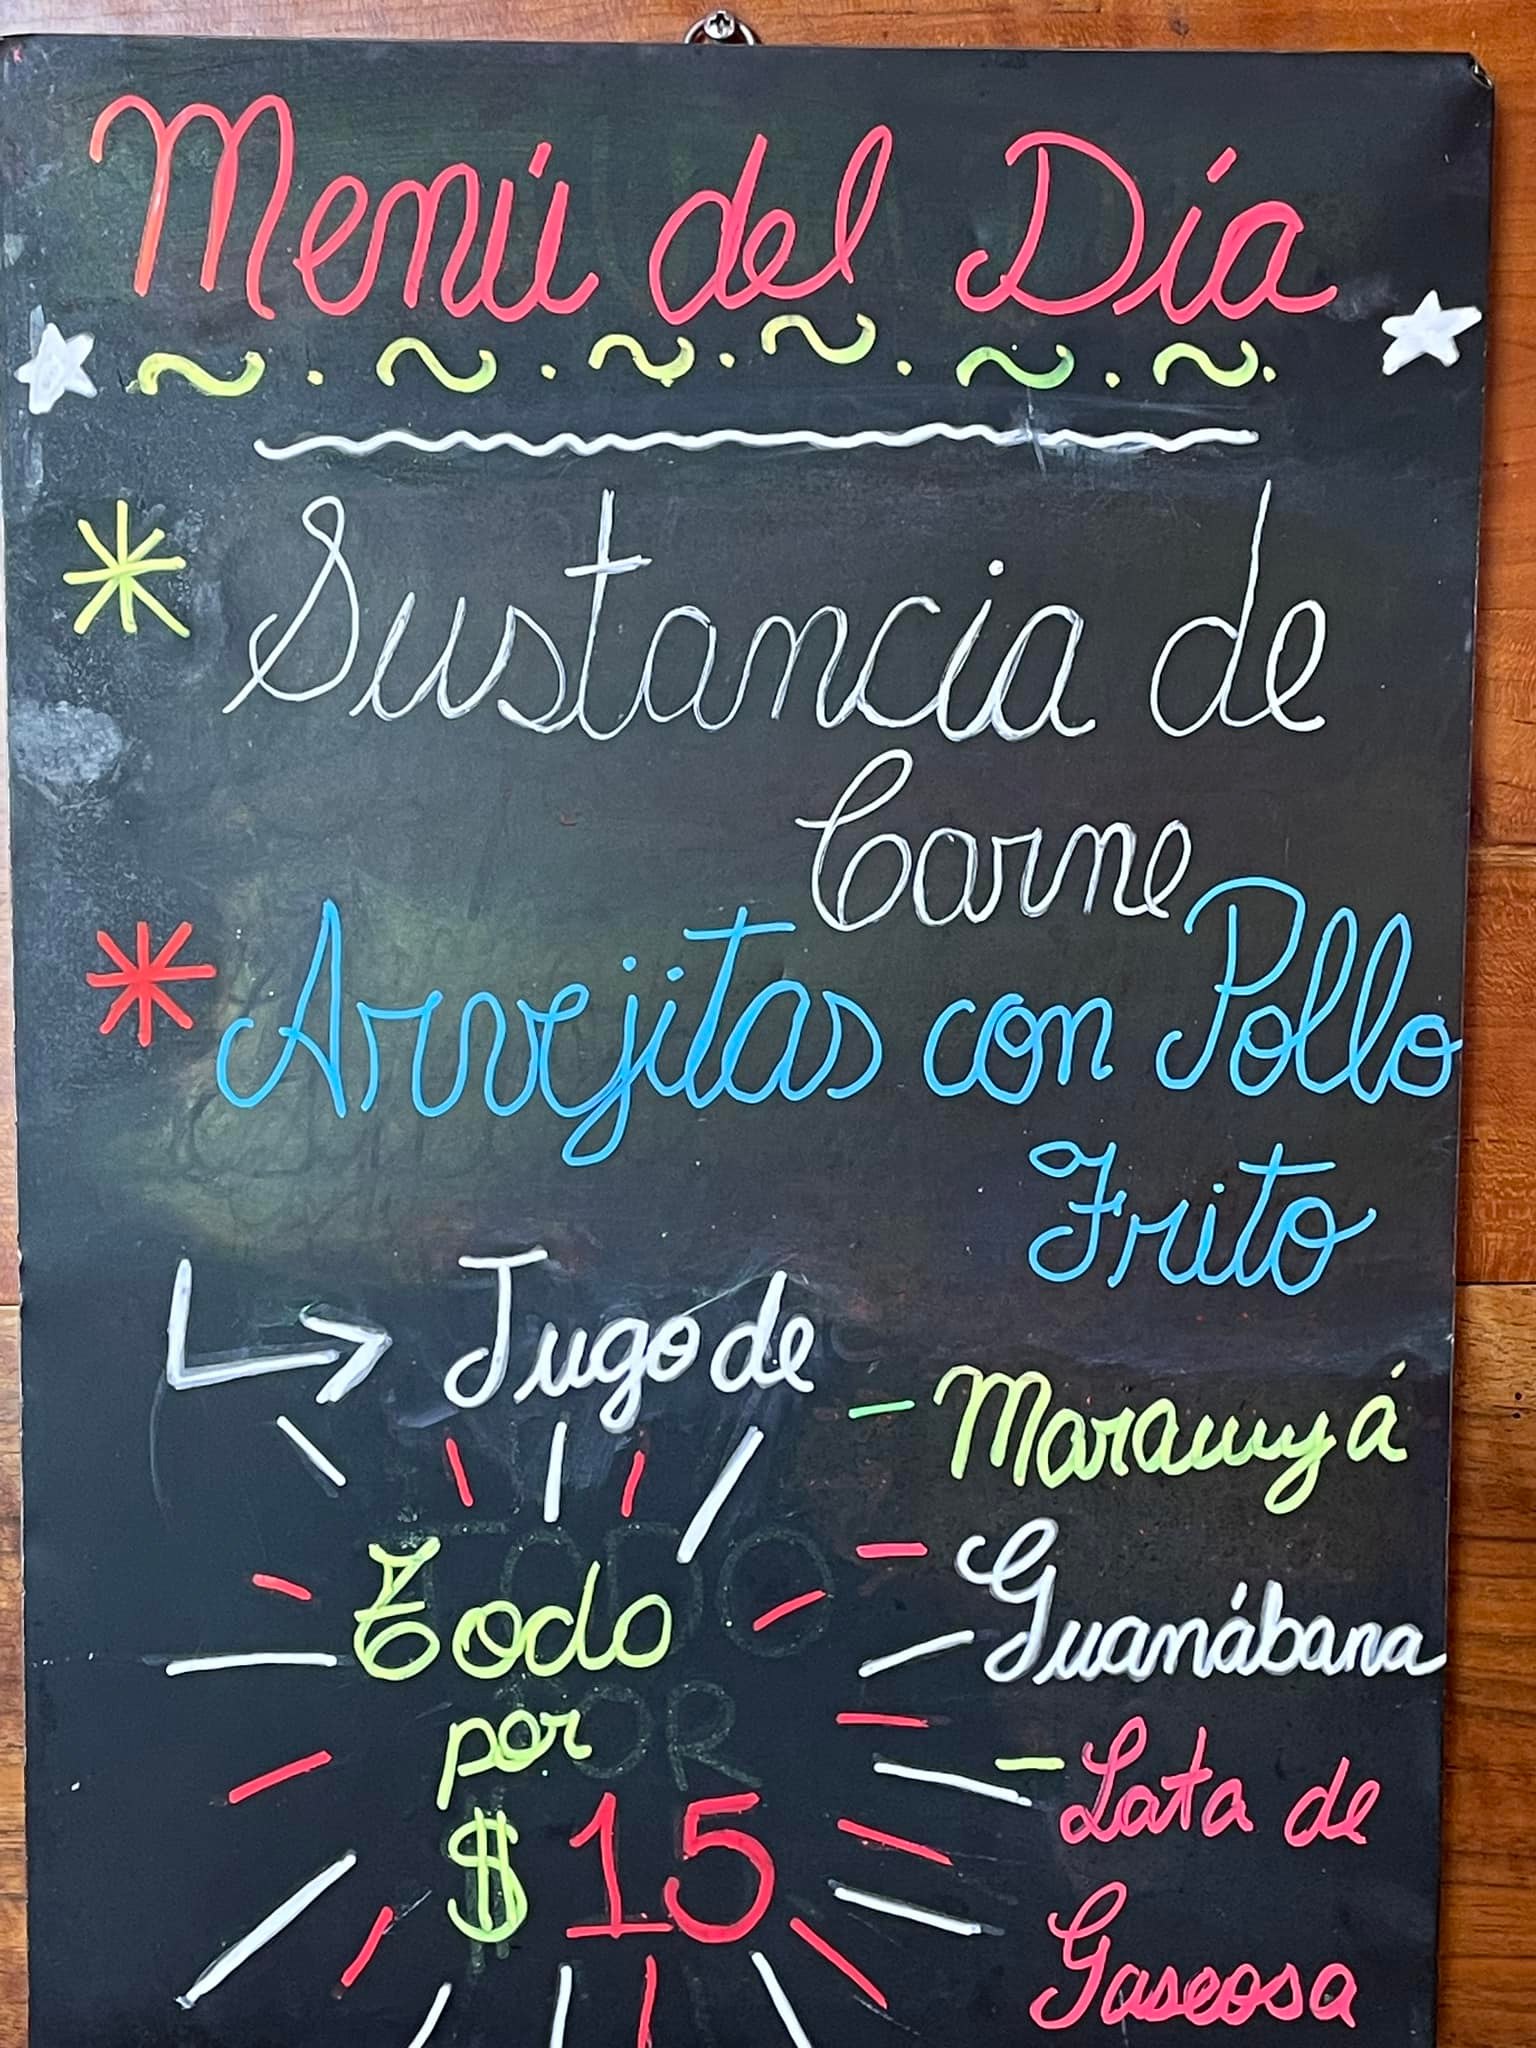 Menú del Día
Sustancia de
Carne
Arvejitas con Pollo
Frito
Jugo de
- Maracuyá
- Guanábana
- Lata de
Gaseosa
Todo
por
$ 15
TODO
POR